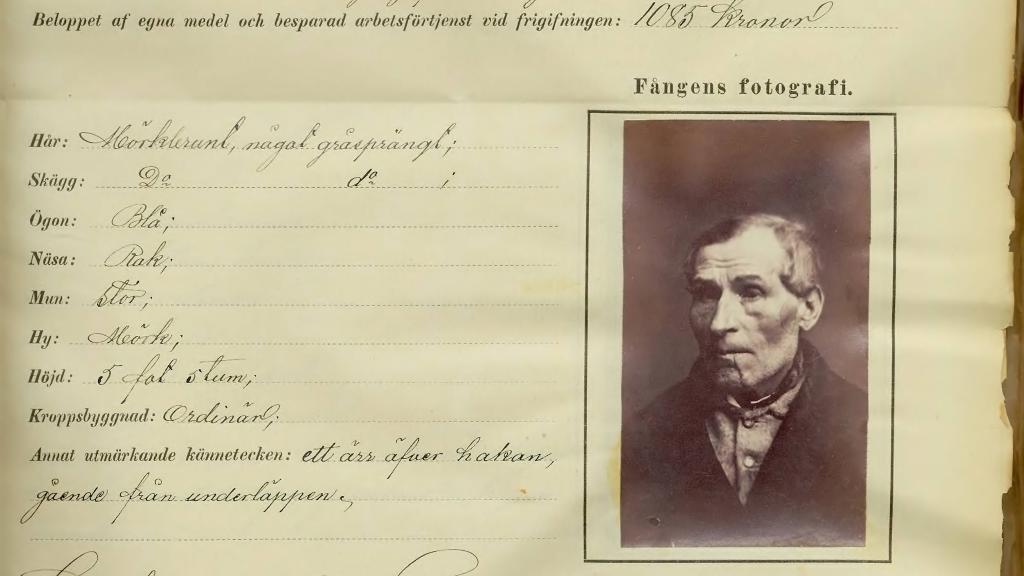 Beloppet af egna medel och besparad arbetsförtjenst vid frigifningen: 1085 Kronor
Fångens fotografi.
Hår: Mörkbrunt, något gråsprängt;
Skägg: Do do ;
Ögon: Blå;
Näsa: Rak;
Mun: Stor;
Hy: Mörk;
Höjd: 5 fot 5 tum;
Kroppsbyggnad: Ordinär;
Annat utmärkande kännetecken: ett ärr äfver hakan,
gående från underläppen.